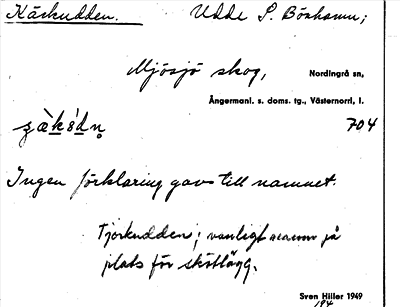 Kärkudden. Udde S. Bönhamn;
Mjösjö skog, Nordingrå sn,
Ångermanl. s. doms. tg., Västernorrl. l.
704
Ingen förklaring gavs till namnet.
Tjärkudden; vanligt namn på
plats för skötlägg.
Sven Hiller 1949